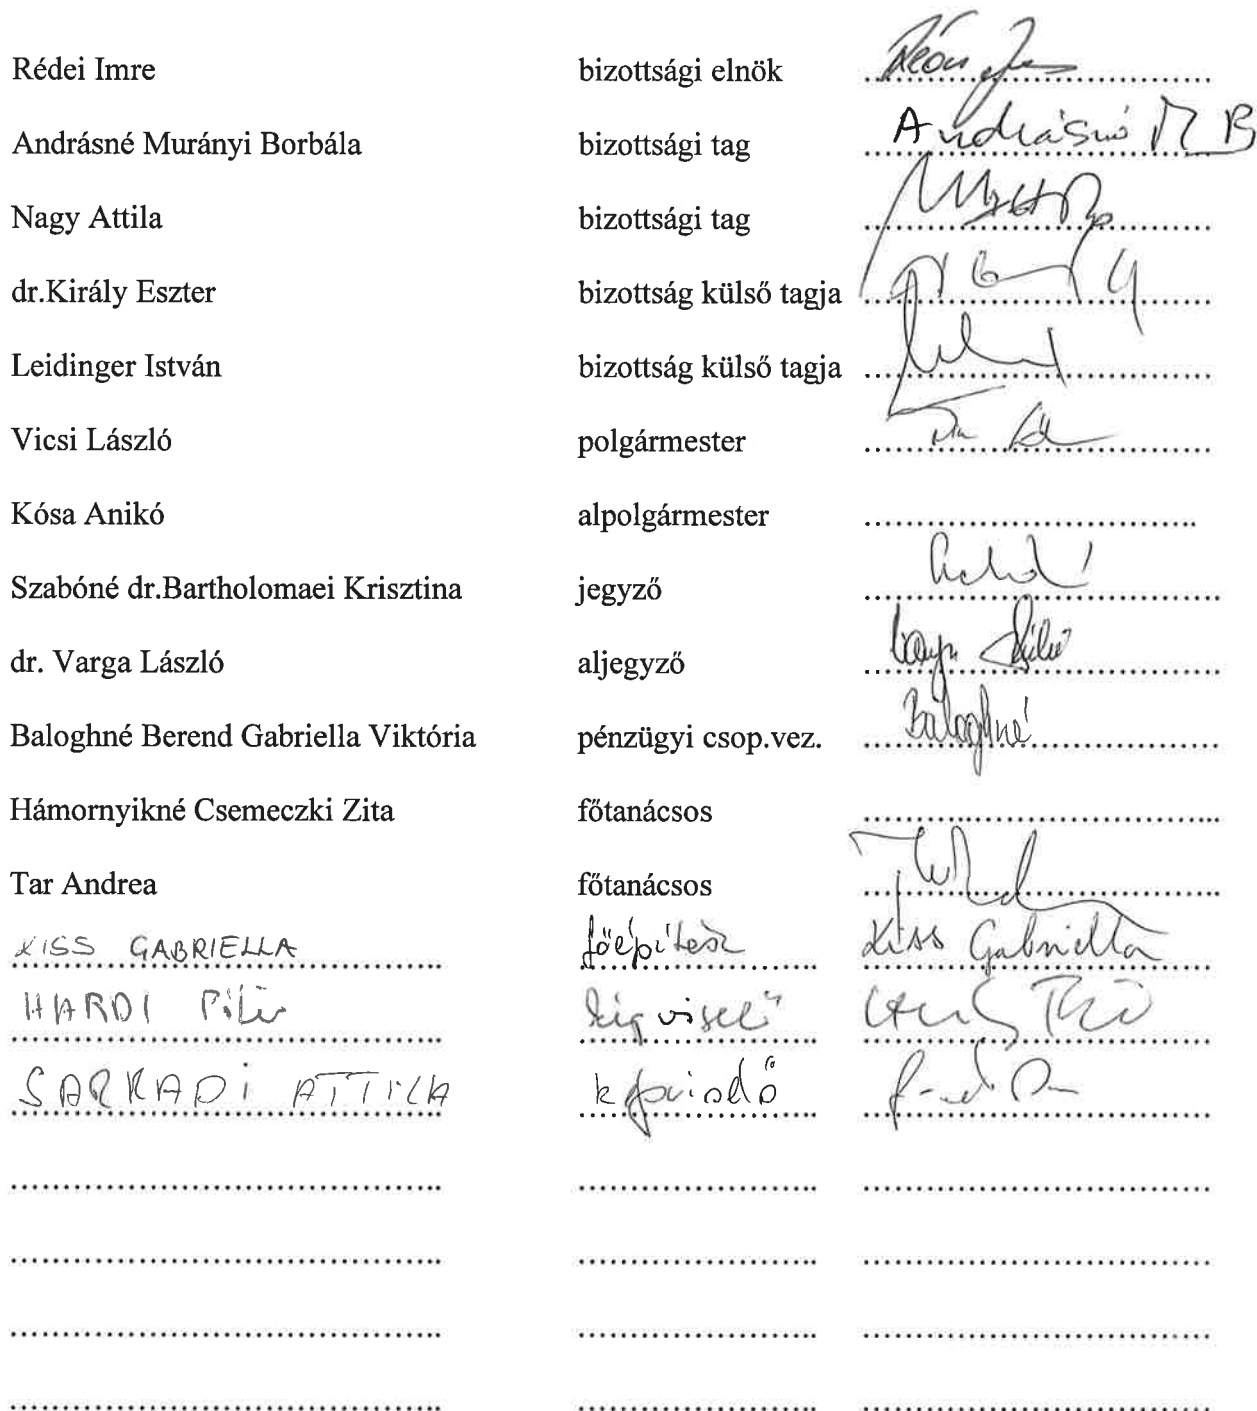 Rédei Imre bizottsági elnök
Andrásné Murányi Borbála bizottsági tag Andrásné M B
Nagy Attila bizottsági tag
dr.Király Eszter bizottság külső tagja
Leidinger István bizottság külső tagja
Vicsi László polgármester
Kósa Anikó alpolgármester
Szabóné dr.Bartholomaei Krisztina jegyző
dr. Varga László aljegyző
Baloghné Berend Gabriella Viktória pénzügyi csop.vez. Baloghné
Hámornyikné Csemeczki Zita főtanácsos
Tar Andrea főtanácsos
KISS GABRIELLA főépítész Kiss Gabriella
HARDI képviselő
SARKADI ATTILA képviselő